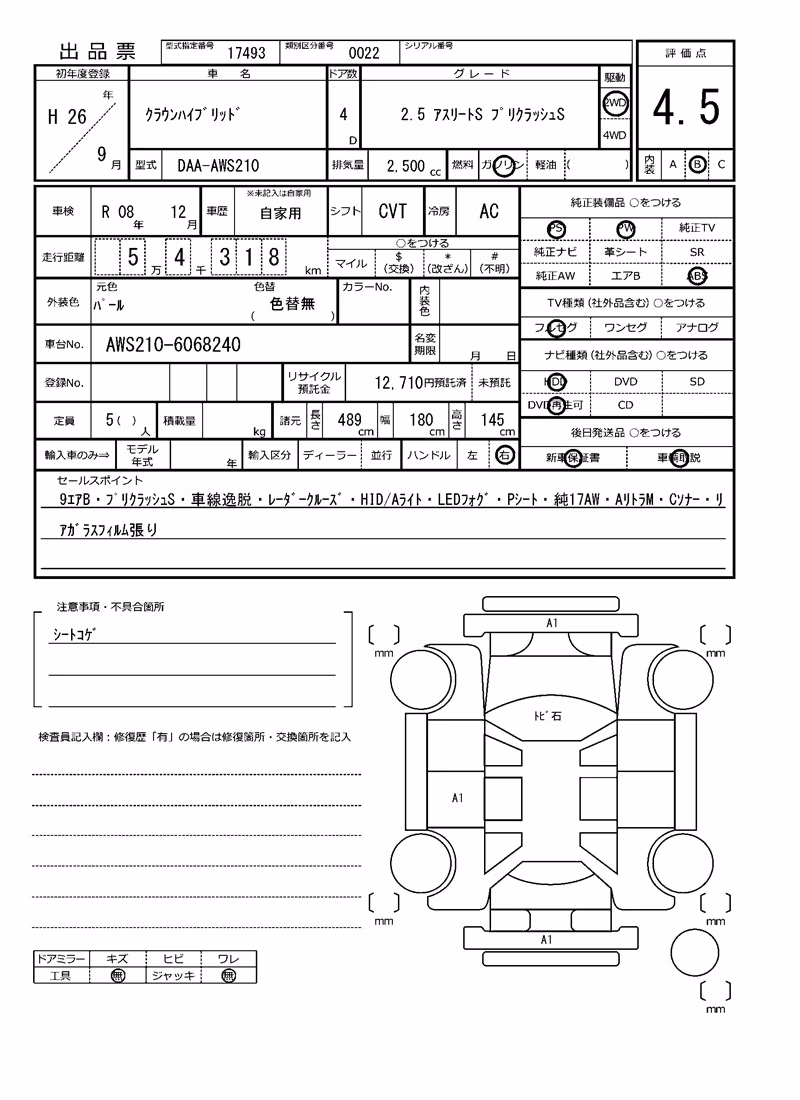 出品票 型式指定番号 17493 類別区分番号 0022 シリアル番号
評価点
4.5
内装 A B C
初年度登録 車名 ドア数 グレード 駆動
H 26 年 9 月 クラウンハイブリッド 4 D 2.5 アスリートS プリクラッシュS 2WD
4WD
型式 DAA-AWS210 排気量 2,500 cc 燃料 ガソリン 軽油 ( )
車検 R 08 年 12 月 車歴 ※未記入は自家用 自家用 シフト CVT 冷房 AC
走行距離 5 万 4 千 3 1 8 km
○をつける
マイル $(交換) *(改ざん) #(不明)
外装色 元色 パール 色替 ( 色替無 ) カラーNo. 内装色
車台No. AWS210-6068240 名変期限 月 日
登録No. リサイクル預託金 12,710円預託済 未預託
定員 5 ( ) 人 積載量 kg 諸元 長さ 489 cm 幅 180 cm 高さ 145 cm
輸入車のみ⇒ モデル年式 年 輸入区分 ディーラー 並行 ハンドル 左 右
純正装備品 ○をつける
PS PW 純正TV
純正ナビ 革シート SR
純正AW エアB ABS
TV種類(社外品含む) ○をつける
フルセグ ワンセグ アナログ
ナビ種類(社外品含む) ○をつける
HDD DVD SD
DVD再生可 CD
後日発送品 ○をつける
新車保証書 車輌取説
セールスポイント
9エアB・プリクラッシュS・車線逸脱・レーダークルーズ・HID/Aライト・LEDフォグ・Pシート・純17AW・AリトラM・Cソナー・リ
アガラスフィルム張り
注意事項・不具合箇所
シートコゲ
検査員記入欄：修復歴「有」の場合は修復箇所・交換箇所を記入
ドアミラー キズ ヒビ ワレ
工具 無 ジャッキ 無
A1
mm mm
トビ石
A1
mm mm
A1
mm